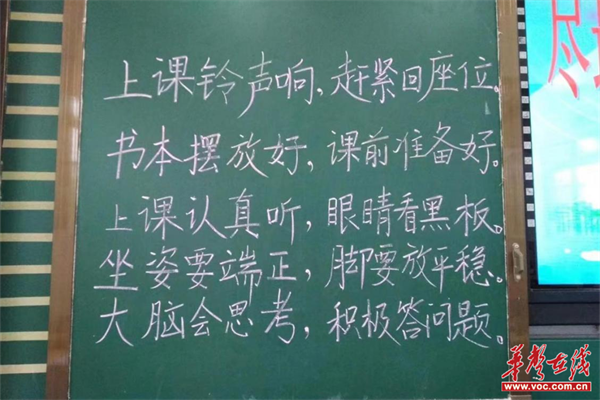 上课铃声响,赶紧回座位。
书本摆放好,课前准备好。
上课认真听,眼睛看黑板。
坐姿要端正,脚要放平稳。
大脑会思考,积极答问题。
尽
华声在线
www.voc.com.cn